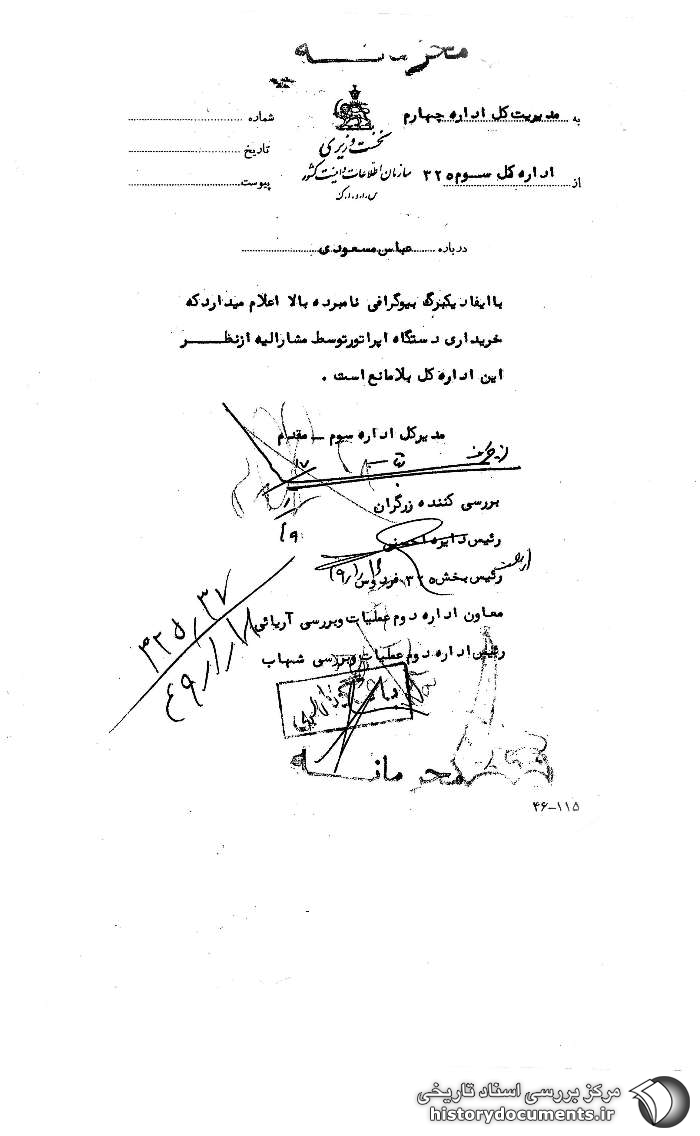 محرمانه
به مدیریت کل اداره چهارم
شماره
نخست وزیری
تاریخ
سازمان اطلاعات و امنیت کشور
از اداره کل سوم ۳۲۵
پیوست
س.ا.و.ا.ک
درباره عباس مسعودی
با ایفاد یکبرگ بیوگرافی نامبرده بالا اعلام میدارد که
خریداری دستگاه اپراتور توسط مشارالیه از نظر
این اداره کل بلامانع است .
مدیر کل اداره سوم - مقدم
از طرف
بررسی کننده زرگران
رئیس دایره
رئیس بخش فردوس
معاون اداره دوم عملیات و بررسی آریائی
رئیس اداره دوم عملیات و بررسی شهاب
۳۲۵٫۳۷
محرمانه
۴۶-۱۱۵
مرکز بررسی اسناد تاریخی
historydocuments.ir